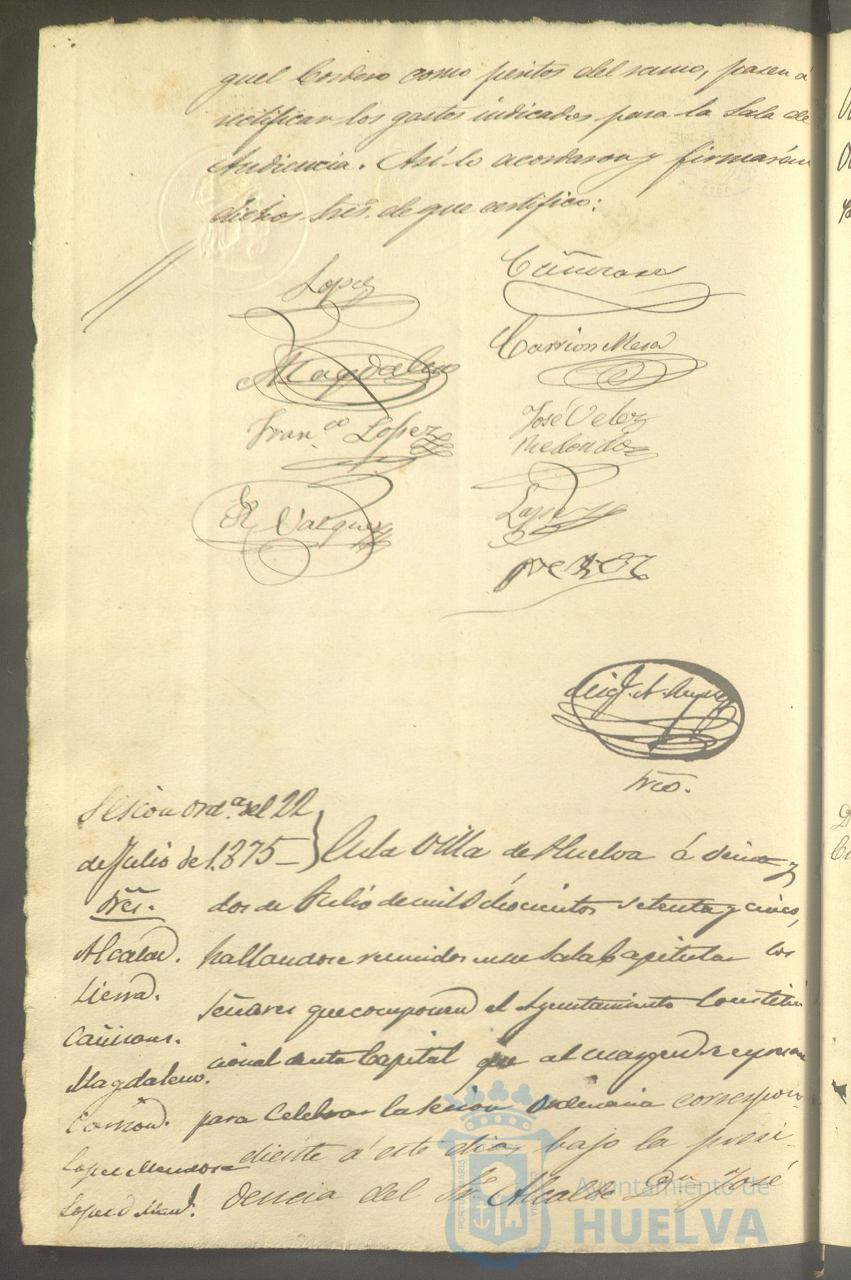 guel Cordero como peritos del ramo, pasen á
rectificar los gastos indicados para la Sala de
Audiencia. Así lo acordaron y firmarán
dichos Sres. de que certifico:
Lopez
Cañizares
Magdaleno
Carrion Mesa
Fran.co Lopez
José Velez
Redondo
R Vazquez
Lopez
Perez
Srio.
Sesion Ord.a del 22
de Julio de 1.875
En la Villa de Huelva á veinte y
Sres.
dos de Julio de mil ochocientos setenta y cinco,
Alcalde.
hallandose reunidos en su Sala Capitular los
Sierra.
Señores que componen el Ayuntamiento Constitu
Magdaleno.
cional de esta Capital que al margen se expresan
Carrion.
para celebrar la sesion ordinaria correspon-
Lopez Mendoza
diente á este dia, bajo la presi-
Lopez
dencia del Sr. Alcalde Dn José
Ayuntamiento de
HUELVA